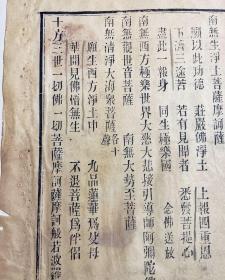 南無生淨土菩薩摩訶薩
願以此功德 莊嚴佛淨土 上報四重恩
下濟三途苦 若有見聞者 悉發菩提心
盡此一報身 同生極樂國 念佛送放
南無西方極樂世界大慈大悲接引導師阿彌陀
南無觀世音菩薩 南無大勢至菩薩
南無清淨大海眾菩薩 各十聲
願生西方淨土中 九品蓮華為父母
華開見佛悟無生 不退菩薩為伴侶
十方三世一切佛一切菩薩摩訶薩摩訶般若波羅